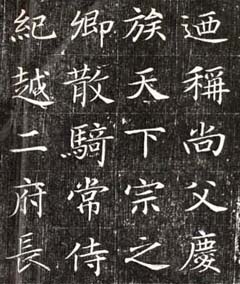 迺稱尚父慶
族天下宗之
卿散騎常侍
紀越二府長